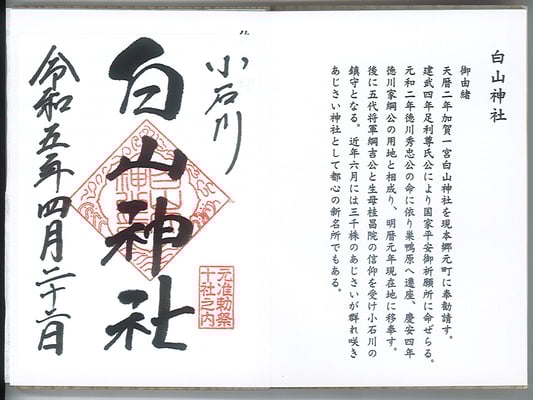 白山神社
御由緒
天暦二年加賀一宮白山神社を現本郷元町に奉勧請す。
建武四年足利尊氏公により国家平安御祈願所に命ぜらる。
元和二年徳川秀忠公の命に依り巣鴨原へ遷座、慶安四年
徳川家綱公の用地と相成り、明暦元年現在地に移奉す。
後に五代将軍綱吉公と生母桂昌院の信仰を受け小石川の
鎮守となる。近年六月には三千株のあじさいが群れ咲き
あじさい神社として都心の新名所でもある。
小石川
元准勅祭
十社之内
白山神社
令和五年四月